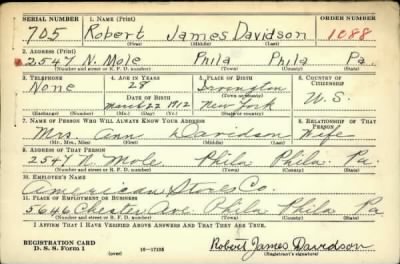 SERIAL NUMBER 1. NAME (Print) ORDER NUMBER
705 Robert James Davidson 1088
(First) (Middle) (Last)
2. ADDRESS (Print)
2547 N. Mole Phila Phila Pa.
(Number and street or R. F. D. number) (Town) (County) (State)
3. TELEPHONE 4. AGE IN YEARS 5. PLACE OF BIRTH 6. COUNTRY OF CITIZENSHIP
None 28 Irvington U.S.
DATE OF BIRTH (Town or county)
March 22 1912 New York
(Exchange) (Number) (Mo.) (Day) (Yr.) (State or country)
7. NAME OF PERSON WHO WILL ALWAYS KNOW YOUR ADDRESS 8. RELATIONSHIP OF THAT PERSON
Mrs. Ann Davidson Wife
(Mr., Mrs., Miss) (First) (Middle) (Last)
9. ADDRESS OF THAT PERSON
2547 N. Mole Phila Phila Pa.
(Number and street or R. F. D. number) (Town) (County) (State)
10. EMPLOYER'S NAME
American Stores Co.
11. PLACE OF EMPLOYMENT OR BUSINESS
5646 Chester Ave. Phila Phila Pa
(Number and street or R. F. D. number) (Town) (County) (State)
I AFFIRM THAT I HAVE VERIFIED ABOVE ANSWERS AND THAT THEY ARE TRUE.
REGISTRATION CARD
D. S. S. Form 1 (over) 16—17105 Robert James Davidson
(Registrant's signature)